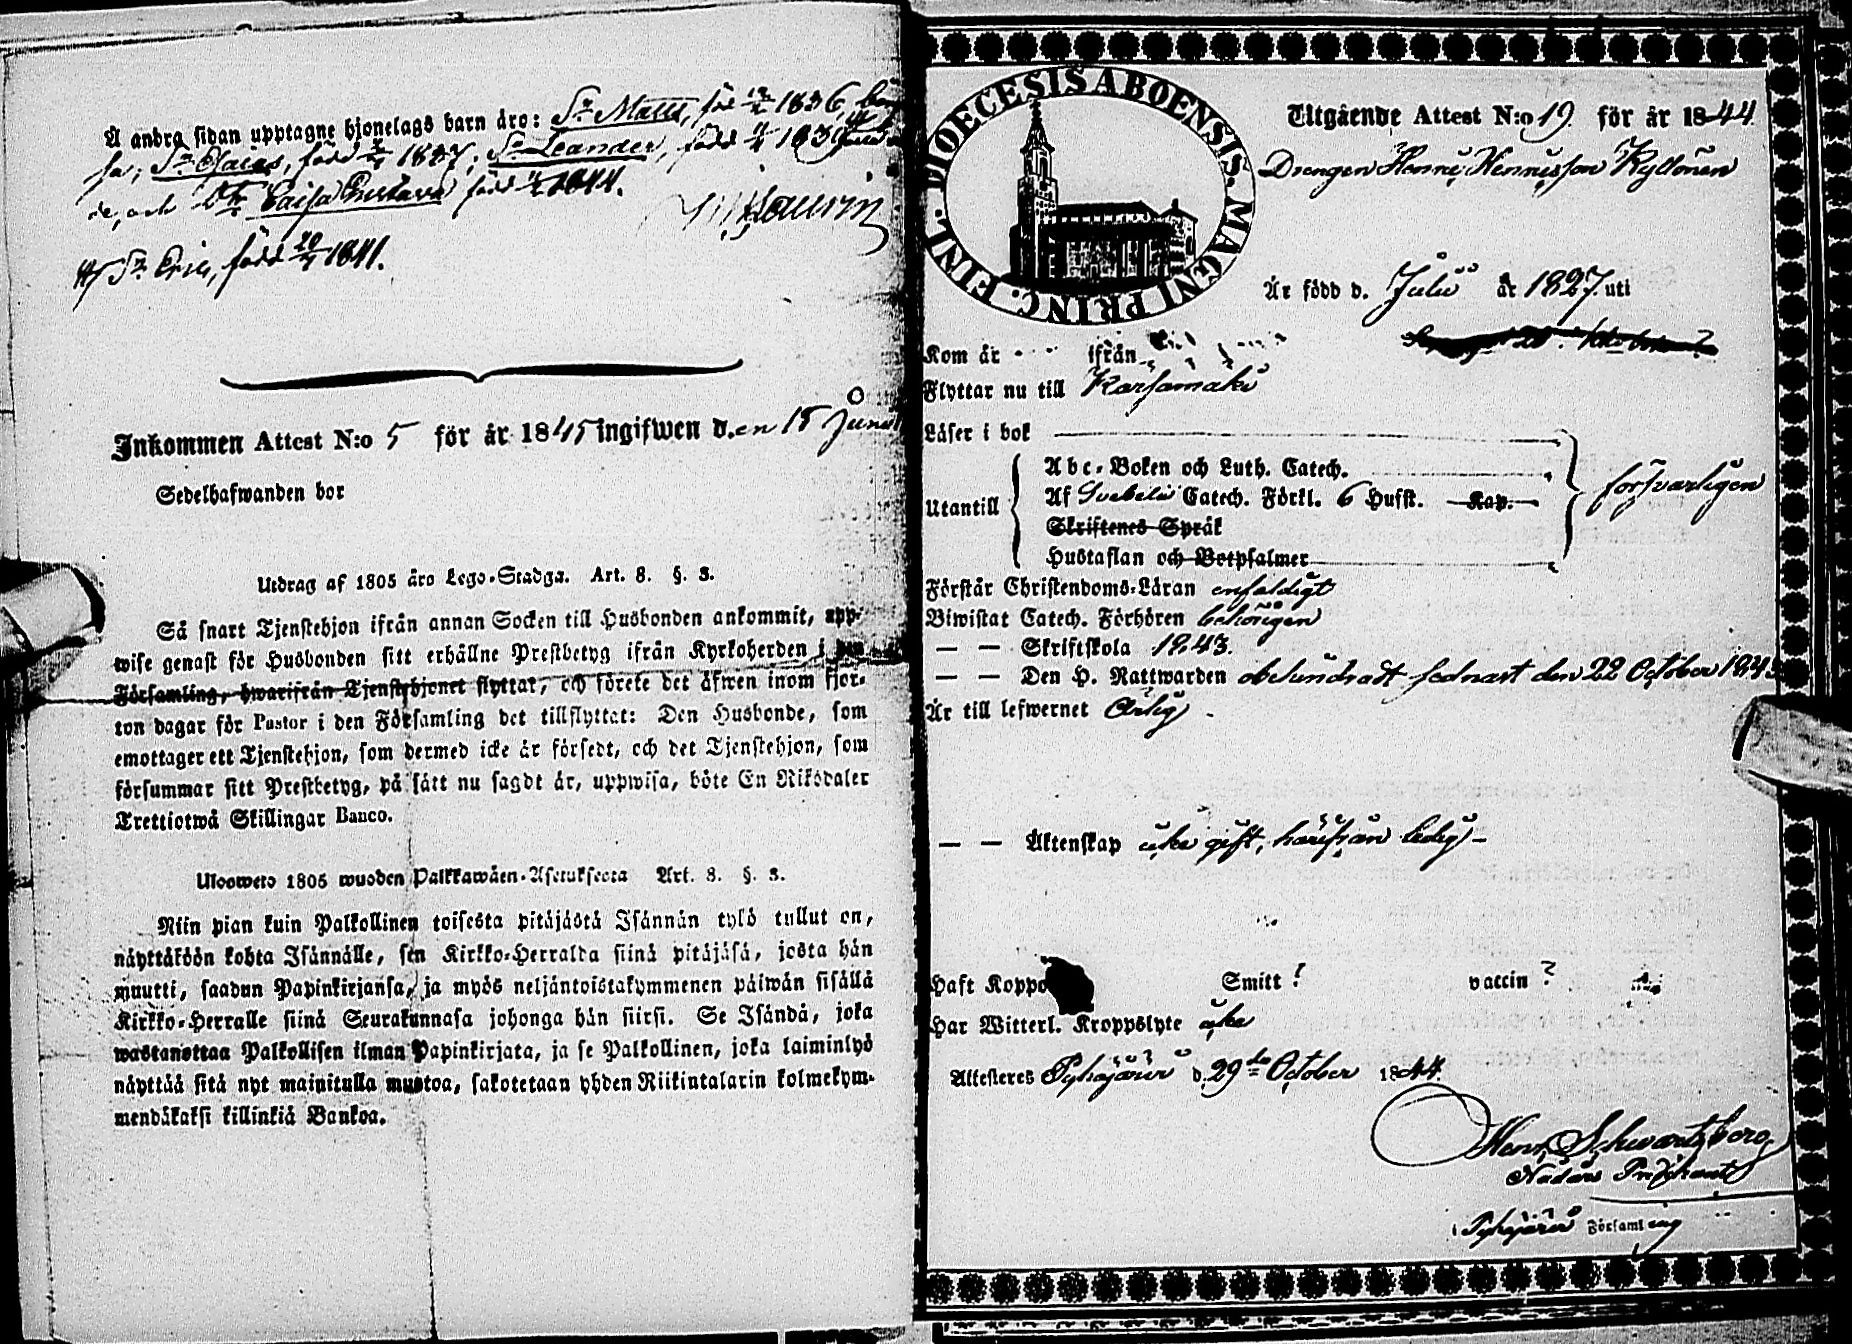 Å andra sidan upptagne hjonelags barn äro: Sn Matts, född 1836,
Sn Esaias, född 1837; Sn Leander, född 1839
och Dtr Caisa Gustava född 1844.
Sn Eric, född 20/4 1841.
Inkommen Attest N:o 5 för år 1845 ingifwen d.en 15 Junii
Sedelhafwanden bor
Utdrag af 1805 års Lego-Stadga. Art. 8. §. 3.
Så snart Tjenstehjon ifrån annan Socken till Husbonden ankommit, upp-
wise genast för Husbonden sitt erhållne Prestbetyg ifrån Kyrkoherden i den
Församling, hwarifrån Tjenstehjonet flyttat, och förete det äfwen inom fjor-
ton dagar för Pastor i den Församling det tillflyttat: Den Husbonde, som
emottager ett Tjenstehjon, som dermed icke är försedt, och det Tjenstehjon, som
försummar sitt Prestbetyg, på sätt nu sagdt är, uppwisa, böte En Riksdaler
Trettiotwå Skillingar Banco.
Ulooweto 1805 wuoden Palkkawäen-Asetuksesta Art. 8. §. 3.
Niin pian kuin Palkollinen toisesta pitäjästä Isännän tylö tullut on,
näyttäköön kohta Isännälle, sen Kirkko-Herralta siinä pitäjäsä, josta hän
muutti, saadun Papinkirjansa, ja myös neljäntoistakymmenen päiwän sisällä
Kirkko-Herralle siinä Seurakunnasa johonga hän siirsi. Se Isändä, joka
wastanottaa Palkollisen ilman Papinkirjata, ja se Palkollinen, joka laiminlyö
näyttää sitä nyt mainitulla muotoa, sakotetaan yhden Riikintalarin kolmekym-
mendäkaksi killinkiä Bankoa.
DIOECESIS ABOENSIS. MAGNI PRINC. FINL.
Utgående Attest N:o 19 för år 1844
Drengen Henric Henricsson Kyllönen
Är född d. Julii år 1827 uti
Kom år ifrån
Flyttar nu till Karsamäki
Läser i bok
försvarligen
Utantill
Abc-Boken och Luth. Catech.
Af Svebelii Catech. Förkl. 6 Hufst. Kap.
Skriftenes Språk
Hustaflan och Botpsalmer
Förstår Christendoms-Läran enfaldigt
Biwistat Catech. Förhören behörigen
— — Skriftskola 1843.
— — Den H. Nattwarden obehindradt sednast den 22 October 1843
Är till lefwernet Ärlig.
— — Äktenskap icke gift, härifrån ledig —
Haft Koppo Smitt ? vaccin ?
Har Witterl. Kroppslyte icke
Attesteres Pyhäjärvi d. 29de October 1844.
Henr. Schwartzberg
Nådårs Predikant
i Pyhäjärvi Församling